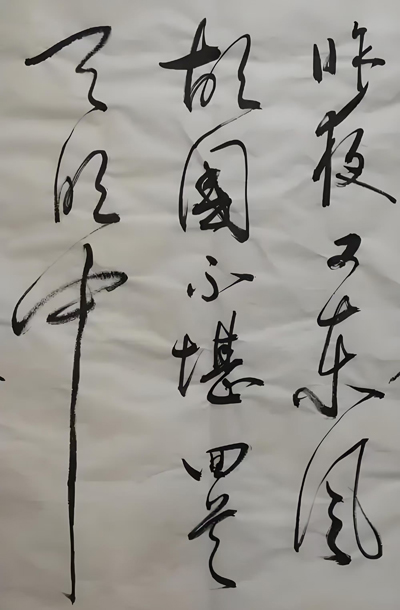 昨夜又东风
故國不堪回首
月明中